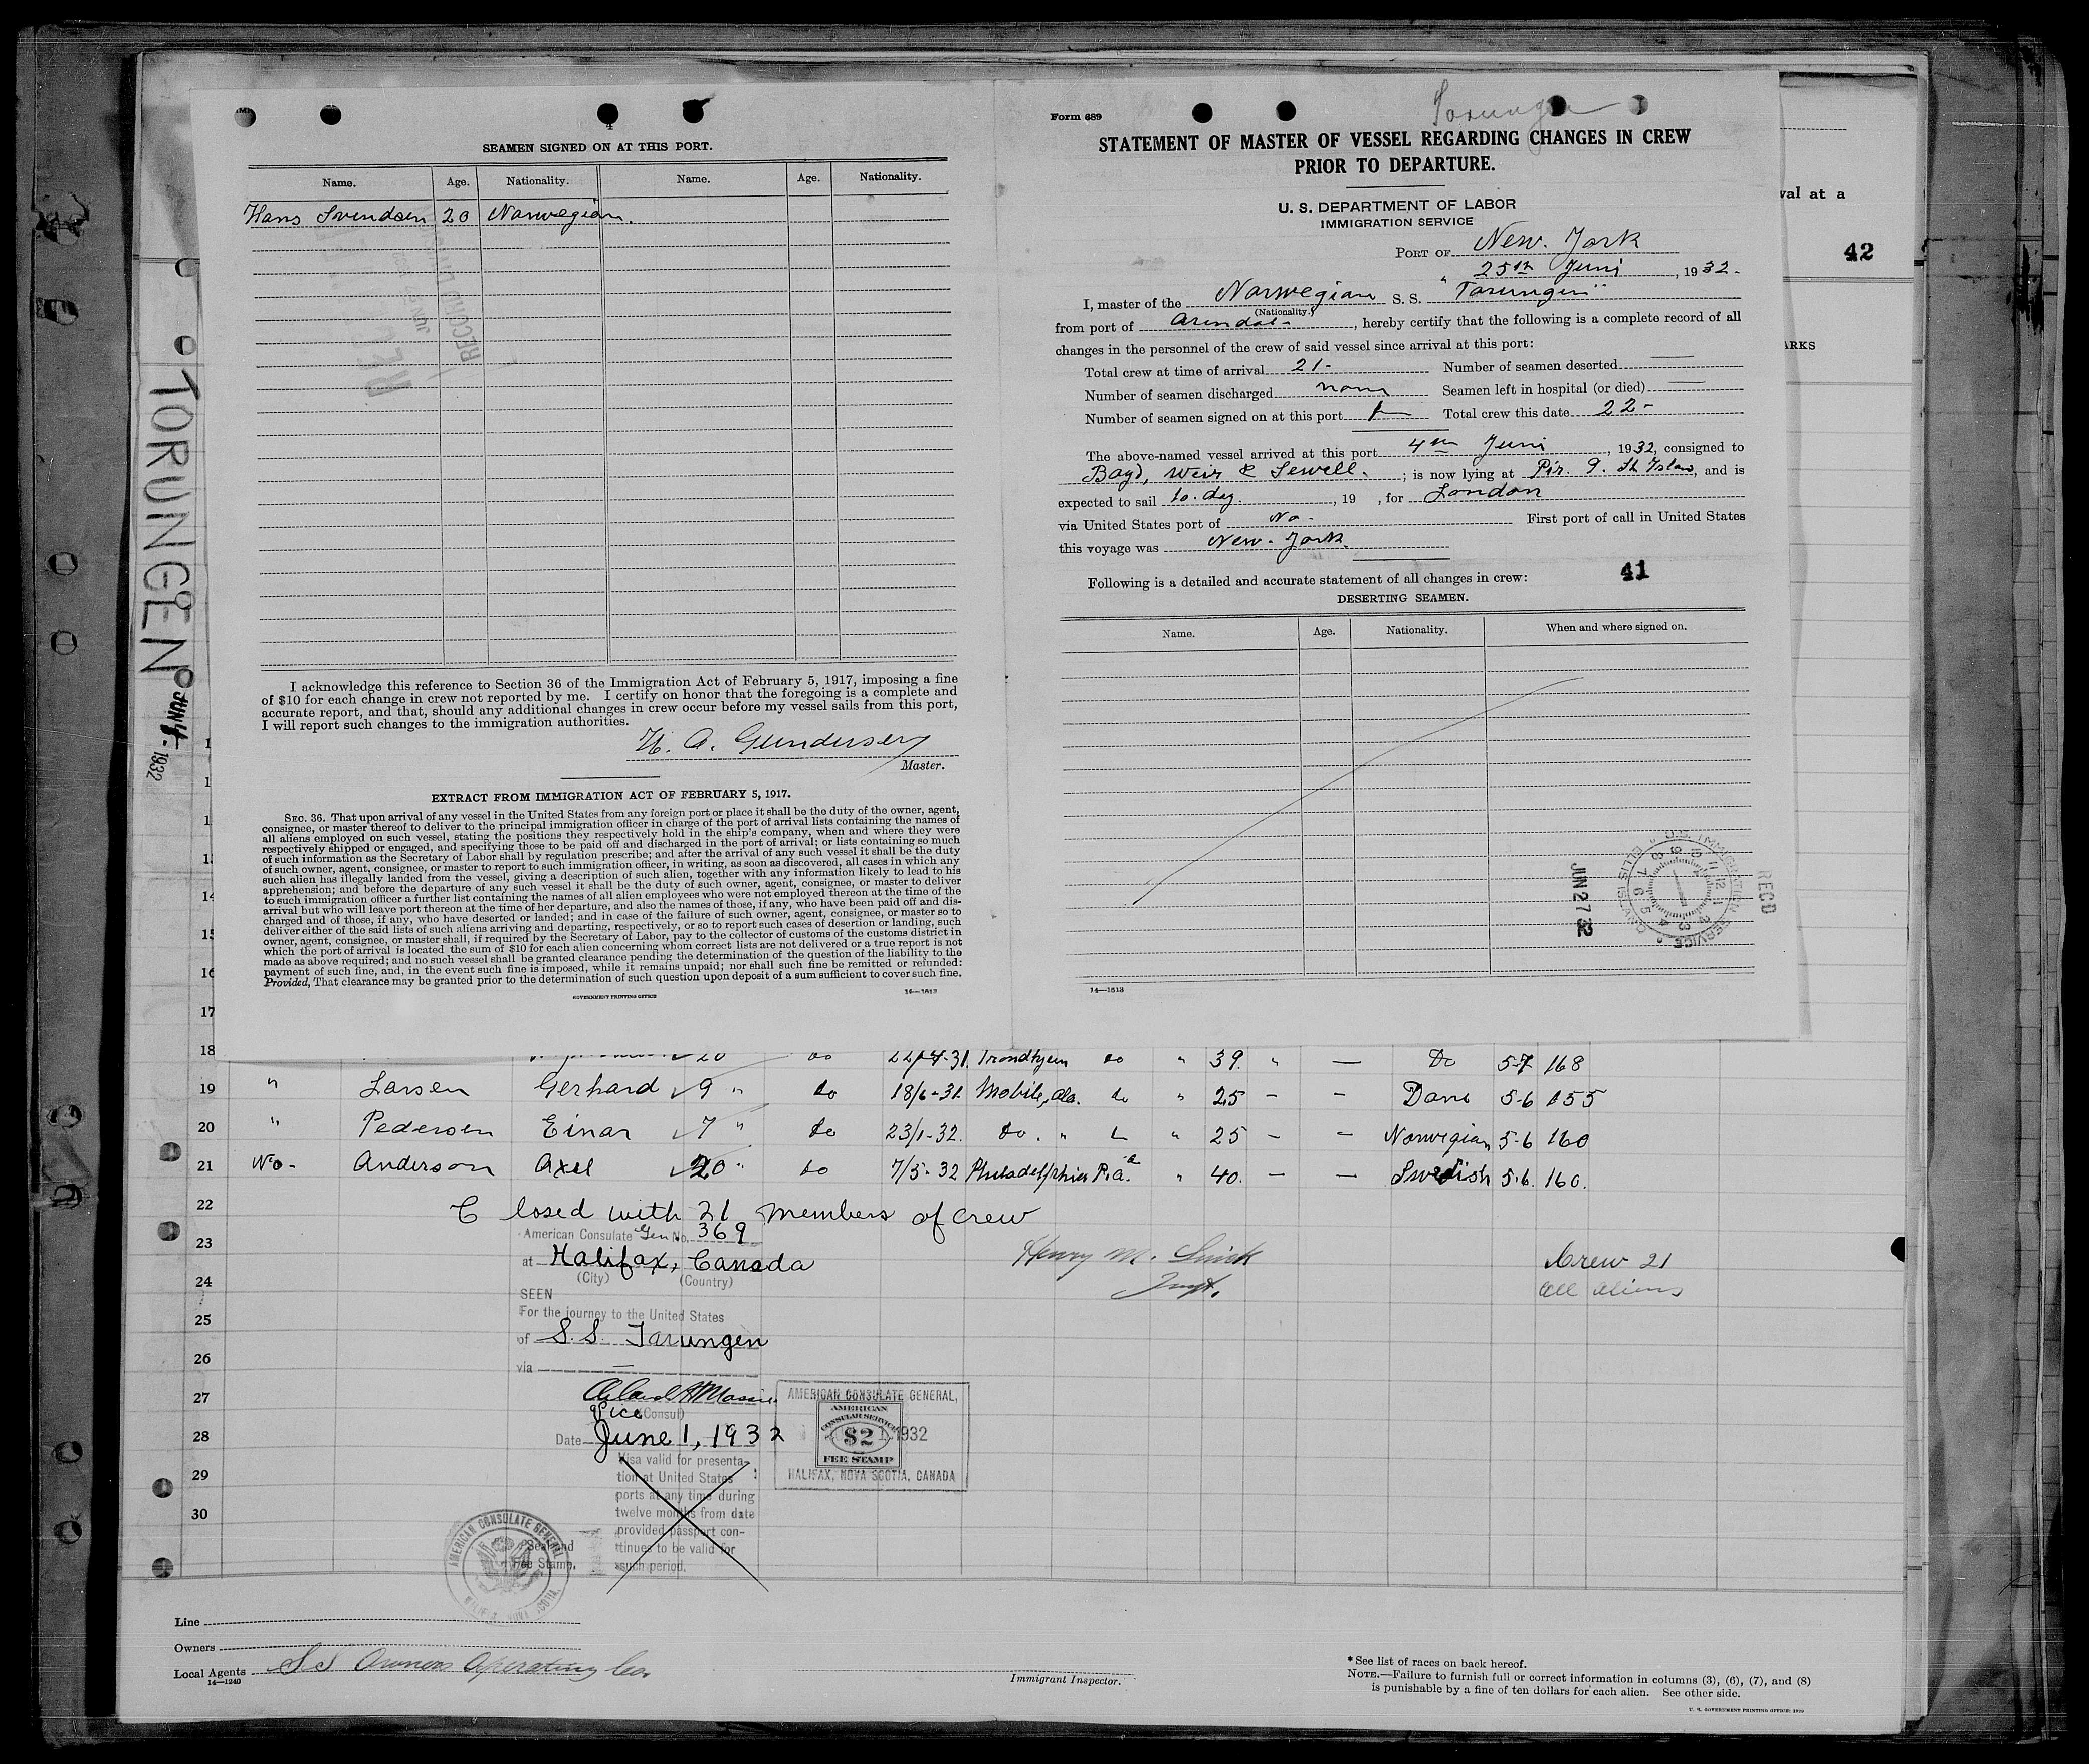 4
SEAMEN SIGNED ON AT THIS PORT.
Name. Age. Nationality. Name. Age. Nationality.
Hans Svendsen 20 Norwegian.
I acknowledge this reference to Section 36 of the Immigration Act of February 5, 1917, imposing a fine
of $10 for each change in crew not reported by me. I certify on honor that the foregoing is a complete and
accurate report, and that, should any additional changes in crew occur before my vessel sails from this port,
I will report such changes to the immigration authorities.
H. A. Gundersen
Master.
EXTRACT FROM IMMIGRATION ACT OF FEBRUARY 5, 1917.
SEC. 36. That upon arrival of any vessel in the United States from any foreign port or place it shall be the duty of the owner, agent,
consignee, or master thereof to deliver to the principal immigration officer in charge of the port of arrival lists containing the names of
all aliens employed on such vessel, stating the positions they respectively hold in the ship's company, when and where they were
respectively shipped or engaged, and specifying those to be paid off and discharged in the port of arrival; or lists containing so much
of such information as the Secretary of Labor shall by regulation prescribe; and after the arrival of any such vessel it shall be the duty
of such owner, agent, consignee, or master to report to such immigration officer, in writing, as soon as discovered, all cases in which any
such alien has illegally landed from the vessel, giving a description of such alien, together with any information likely to lead to his
apprehension; and before the departure of any such vessel it shall be the duty of such owner, agent, consignee, or master to deliver
to such immigration officer a further list containing the names of all alien employees who were not employed thereon at the time of the
arrival but who will leave port thereon at the time of her departure, and also the names of those, if any, who have been paid off and dis-
charged and of those, if any, who have deserted or landed; and in case of the failure of such owner, agent, consignee, or master so to
deliver either of the said lists of such aliens arriving and departing, respectively, or so to report such cases of desertion or landing, such
owner, agent, consignee, or master shall, if required by the Secretary of Labor, pay to the collector of customs of the customs district in
which the port of arrival is located the sum of $10 for each alien concerning whom correct lists are not delivered or a true report is not
made as above required; and no such vessel shall be granted clearance pending the determination of the question of the liability to the
payment of such fine, and, in the event such fine is imposed, while it remains unpaid; nor shall such fine be remitted or refunded:
Provided, That clearance may be granted prior to the determination of such question upon deposit of a sum sufficient to cover such fine.
GOVERNMENT PRINTING OFFICE 14—1513
Form 689
Torungen
STATEMENT OF MASTER OF VESSEL REGARDING CHANGES IN CREW
PRIOR TO DEPARTURE.
U. S. DEPARTMENT OF LABOR
IMMIGRATION SERVICE
PORT OF New. York
25th Juni, 1932-
I, master of the Norwegian S. S. "Torungen"
(Nationality.)
from port of Arendal-, hereby certify that the following is a complete record of all
changes in the personnel of the crew of said vessel since arrival at this port:
Total crew at time of arrival 21- Number of seamen deserted —
Number of seamen discharged none Seamen left in hospital (or died) —
Number of seamen signed on at this port 1— Total crew this date 22-
The above-named vessel arrived at this port 4th Juni, 1932, consigned to
Boyd, Weir & Sewell. ; is now lying at Pir. 9. St Islan, and is
expected to sail to. day, 19 , for London
via United States port of No- First port of call in United States
this voyage was New. York
Following is a detailed and accurate statement of all changes in crew: 41
DESERTING SEAMEN.
Name. Age. Nationality. When and where signed on.
U.S. IMMIGRATION SERVICE ELLIS ISLAND
RECD
JUN 27 32
14—1513
val at a
42
ARKS
TORUNGEN
JUN 4- 1932
RECORD DIVISION
14
15
16
17
18 20 do 22/4-31. Trondhjem do " 39. " — Do 5-7 168
19 " Larsen Gerhard 9 " do 18/6-31 Mobile, Ala. do " 25 - - Dane 5-6 155
20 " Pedersen Einar 7 " do 23/1-32. do. " " 25 - - Norwegian 5-6 160
21 No- Anderson Axel 20 " do 7/5-32 Philadelphia Pa. " 40. — — Swedish 5-6. 160.
22 Closed with 21 members of crew
23
24
25
26
27
28
29
30
American Consulate Gen No. 369
at Halifax, Canada
(City) (Country)
SEEN
For the journey to the United States
of S.S. Torungen
via —
Vice (Consul)
Date June 1, 1932
Visa valid for presenta-
tion at United States
ports at any time during
twelve months from date
provided passport con-
tinues to be valid for
such period.
Seal and
Fee Stamp.
AMERICAN CONSULATE GENERAL
HALIFAX, NOVA SCOTIA
AMERICAN CONSULATE GENERAL,
AMERICAN
CONSULAR SERVICE
$2 1932
FEE STAMP
HALIFAX, NOVA SCOTIA, CANADA
Henry M.
Inspt.
Crew 21
all aliens
Line
Owners
Local Agents S S Owners Operating Co.
14—1240
Immigrant Inspector.
* See list of races on back hereof.
NOTE.—Failure to furnish full or correct information in columns (3), (6), (7), and (8)
is punishable by a fine of ten dollars for each alien. See other side.
U. S. GOVERNMENT PRINTING OFFICE: 1929